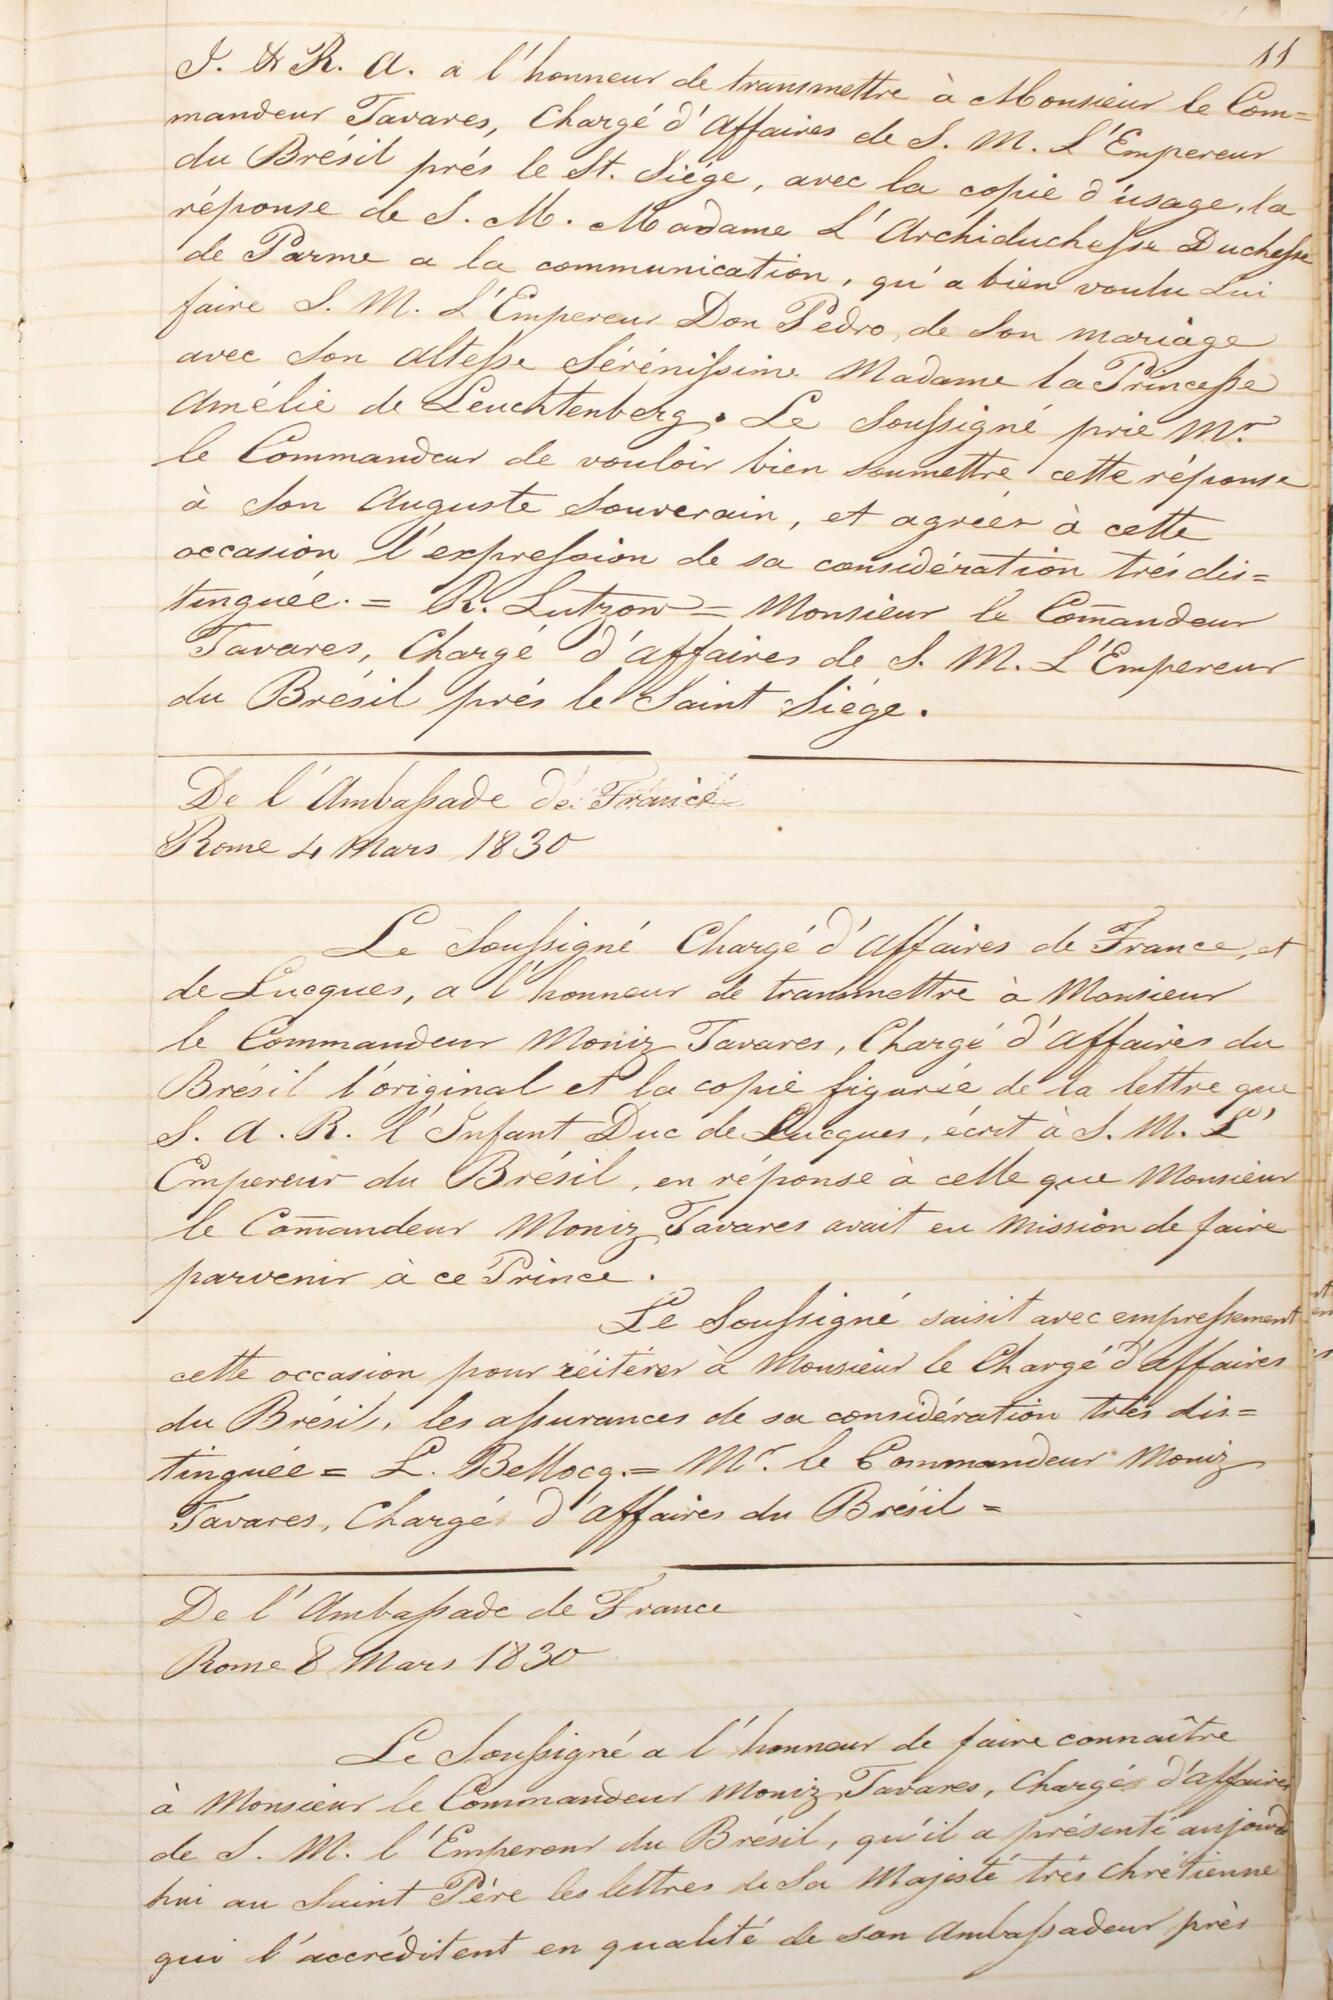 11
I. & R. A. a l'honneur de transmettre à Monsieur le Com=
mandeur Tavares, Chargé d'Affaires de S. M. L'Empereur
du Brésil prés le St. Siége, avec la copie d'usage, la
réponse de S. M. Madame L'Archiduchesse Duchesse
de Parme a la communication, qu'a bien voulu Lui
faire S. M. L'Empereur Don Pedro, de Son mariage
avec Son Altesse Sérénissime Madame la Princesse
Amélie de Leuchtenberg. Le Soussigné prie Mr.
le Commandeur de vouloir bien soumettre cette réponse
à Son Auguste Souverain, et agréer à cette
occasion l'expression de sa considération trés dis=
tinguée. = R. Lutzon = Monsieur le Com̄andeur
Tavares, Chargé d'affaires de S. M. L'Empereur
du Brésil prés le Saint Siége.
De l'Ambassade de France
Rome 4 Mars 1830
Le Soussigné Chargé d'Affaires de France, et
de Lucques, a l'honneur de transmettre à Monsieur
le Commandeur Moniz Tavares, Chargé d'affaires du
Brésil l'original et la copie figurée de la lettre que
S. A. R. l'Infant Duc de Lucques, écrit à S. M. L'
Empereur du Brésil, en réponse à celle que Monsieur
le Com̄andeur Moniz Tavares avait eu mission de faire
parvenir à ce Prince.
Le Soussigné saisit avec empressement
cette occasion pour réitérer à Monsieur le Chargé d'affaires
du Brésil, les assurances de sa considération trés dis=
tinguée = L. Bellocq. = Mr. le Commandeur Moniz
Tavares, Chargé d'affaires du Brésil =
De l'Ambassade de France
Rome 8 Mars 1830
Le Soussigné a l'honneur de faire connaître
à Monsieur le Commandeur Moniz Tavares, Chargé d'affaires
de S. M. l'Empereur du Brésil, qu'il a présenté aujourd
hui au Saint Pére les lettres de Sa Majesté trés Chrétienne
qui l'accréditent en qualité de son Ambassadeur près